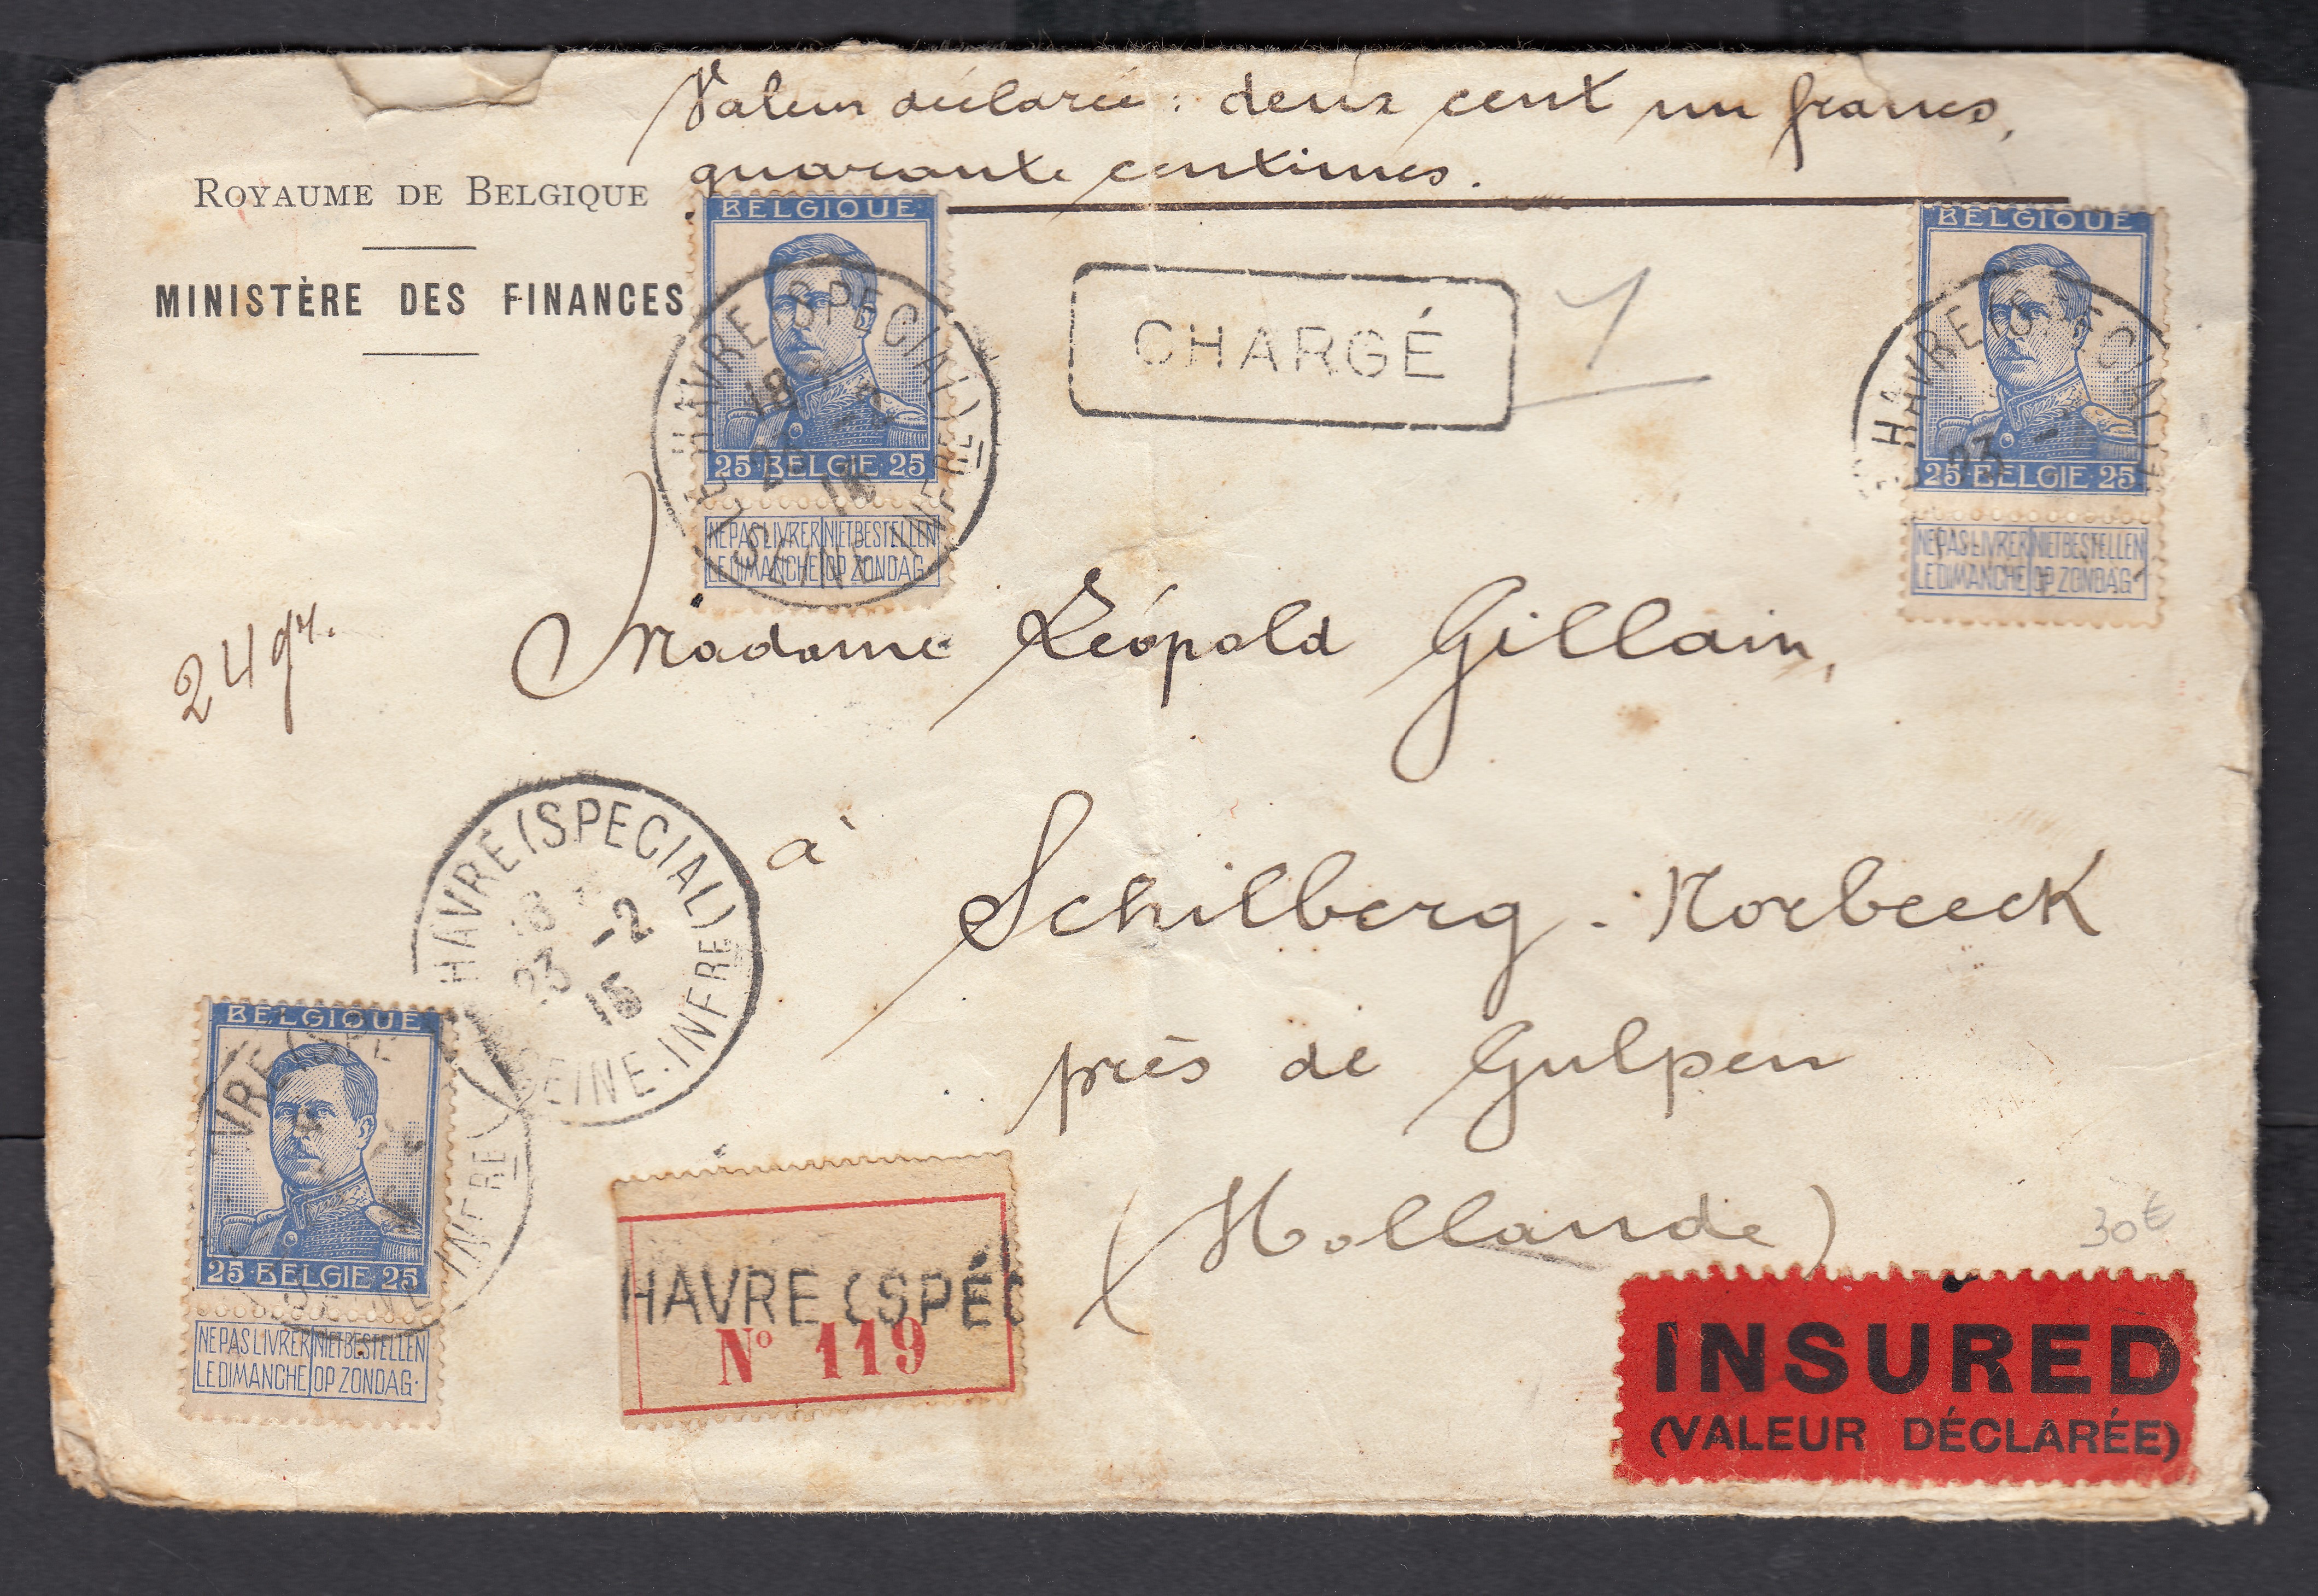 Valeur déclarée : deux cent un francs,
quarante centimes.
ROYAUME DE BELGIQUE
MINISTÈRE DES FINANCES
BELGIQUE
25 BELGIE 25
NE PAS LIVRER LE DIMANCHE
NIET BESTELLEN OP ZONDAG
LE HAVRE (SPECIAL)
18
23 -2
15
SEINE-INFRE
CHARGÉ
1
BELGIQUE
25 BELGIE 25
NE PAS LIVRER LE DIMANCHE
NIET BESTELLEN OP ZONDAG
HAVRE (SPECIAL)
23 -
24 gr.
Madame Léopold Gillain,
à
Schilberg - Norbeeck
près de Gulpen
(Hollande)
HAVRE (SPECIAL)
18
23 -2
15
SEINE-INFRE
BELGIQUE
25 BELGIE 25
NE PAS LIVRER LE DIMANCHE
NIET BESTELLEN OP ZONDAG
VRE (SPE
INFRE
HAVRE (SPÉC
No 119
30€
INSURED
(VALEUR DÉCLARÉE)